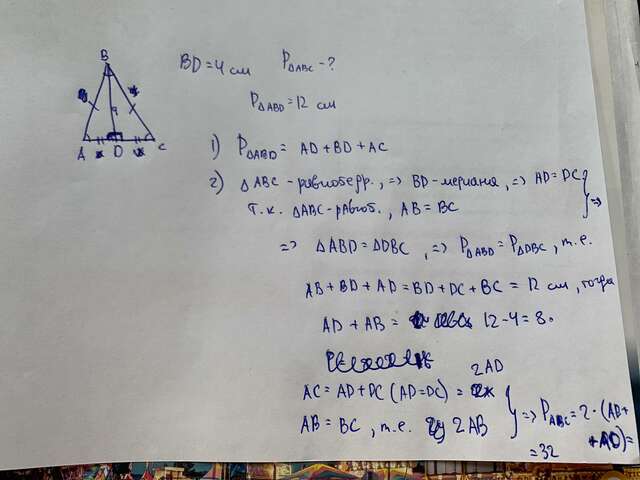 BD = 4 см P△ABC - ?
P△ABD = 12 см
B
4
A D C
1) P△ABD = AD + BD + AC
2) △ABC - равнобедр., => BD - медиана, => AD = DC
т.к. △ABC - равноб., AB = BC } =>
=> △ABD = △DBC, => P△ABD = P△DBC, т.е.
AB + BD + AD = BD + DC + BC = 12 см, тогда
AD + AB = 12 - 4 = 8.
AC = AD + DC (AD = DC) = 2AD
AB = BC, т.е. 2AB } => P△ABC = 2 · (AB +
+ AD) =
= 32